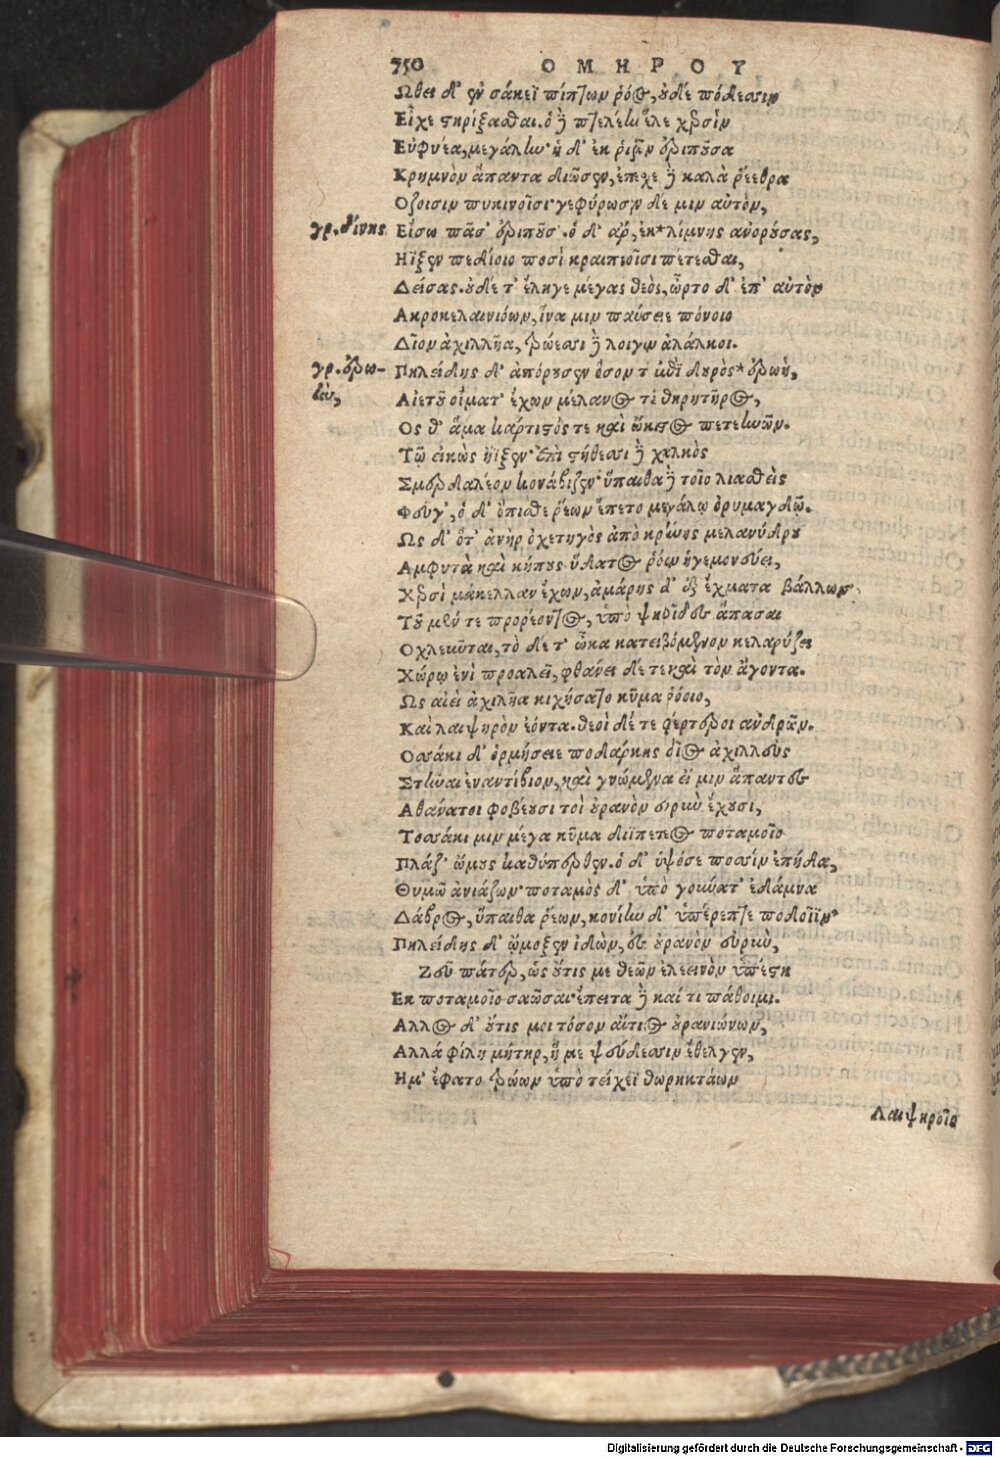 750 ΟΜΗΡΟΥ
Ωθει δ' ἐν σάκεϊ πίπτων ῥόος, οὐδὲ πόδεσσιν
Εἶχε στηρίξασθαι. ὁ δὲ πτελέην ἕλε χερσὶν
Εὐφυέα, μεγάλην· ἡ δ' ἐκ ῥιζῶν ἐριποῦσα
Κρημνὸν ἅπαντα διῶσεν, ἐπέχε δὲ καλὰ ῥέεθρα
Οζοισιν πυκινοῖσι· γεφύρωσεν δέ μιν αὐτὸν,
γρ. δίνης Εἴσω πᾶσ' ἐριποῦσ'. ὁ δ' ἄρ' ἐκ* λίμνης ἀνορούσας,
Ηϊξεν πεδίοιο ποσὶ κραιπνοῖσι πέτεσθαι,
Δείσας. οὐδέ τ' ἔληγε μέγας θεὸς, ὦρτο δ' ἐπ' αὐτὸν
Ακροκελαινιόων, ἵνα μιν παύσειε πόνοιο
Δῖον ἀχιλλῆα, τρώεσσι δὲ λοιγὸν ἀλάλκοι.
γρ. ἐρω- Πηλείδης δ' ἀπόρουσεν ὅσον τ' ἐπὶ δουρὸς* ἐρωὴ,
ὲὺ, Αἰετοῦ οἴματ' ἔχων μέλανός τε θηρητῆρος,
Ος θ' ἅμα κάρτιστός τε καὶ ὤκιστος πετεηνῶν.
Τῷ εἰκὼς ἤϊξεν· ἐπὶ στήθεσσι δὲ χαλκὸς
Σμερδαλέον κονάβιζεν· ὕπαιθα δὲ τοῖο λιασθεὶς
Φεῦγ', ὁ δ' ὄπισθε ῥέων ἕπετο μεγάλῳ ὀρυμαγδῷ.
Ως δ' ὅτ' ἀνὴρ ὀχετηγὸς ἀπὸ κρήνης μελανύδρου
Αμφυτὰ καὶ κήπους ὕδατος ῥόον ἡγεμονεύει,
Χερσὶ μάκελλαν ἔχων, ἀμάρης δ' ἐξ ἔχματα βάλλων·
Τοῦ μέν τε προρέοντος, ὑπὸ ψηφῖδες ἅπασαι
Οχλεῦνται, τὸ δέ τ' ὦκα κατειβόμενον κελαρύζει
Χώρῳ ἐνὶ προαλεῖ, φθάνει δέ τε καὶ τὸν ἄγοντα.
Ως αἰεὶ ἀχιλῆα κιχήσατο κῦμα ῥόοιο,
Καὶ λαιψηρὸν ἐόντα. θεοὶ δέ τε φέρτεροι ἀνδρῶν.
Οσσάκι δ' ὁρμήσειε ποδάρκης δῖος ἀχιλλεὺς
Στῆναι ἐναντίβιον, καὶ γνώμεναι εἴ μιν ἅπαντες
Αθάνατοι φοβέουσι τοὶ οὐρανὸν εὐρὺν ἔχουσι,
Τοσσάκι μιν μέγα κῦμα διϊπετέος ποταμοῖο
Πλάζ' ὤμους καθύπερθεν. ὁ δ' ὑψόσε ποσσὶν ἐπήδα,
Θυμῷ ἀνιάζων· ποταμὸς δ' ὑπὸ γούνατ' ἐδάμνα
Λάβρος, ὕπαιθα ῥέων, κονίην δ' ὑπέρεπτε ποδοῖϊν·
Πηλείδης δ' ᾤμωξεν ἰδὼν, εἰς οὐρανὸν εὐρὺν,
Ζεῦ πάτερ, ὡς οὔτις με θεῶν ἐλεεινὸν ὑπέστη
Εκ ποταμοῖο σαῶσαι· ἔπειτα δὲ καί τι πάθοιμι.
Αλλος δ' οὔτις μοι τόσον αἴτιος οὐρανιώνων,
Αλλὰ φίλη μήτηρ, ἥ με ψεύδεσσιν ἔθελγεν,
Ημ' ἔφατο τρώων ὑπὸ τείχεϊ θωρηκτάων
Λαιψηροῖς
Digitalisierung gefördert durch die Deutsche Forschungsgemeinschaft - DFG